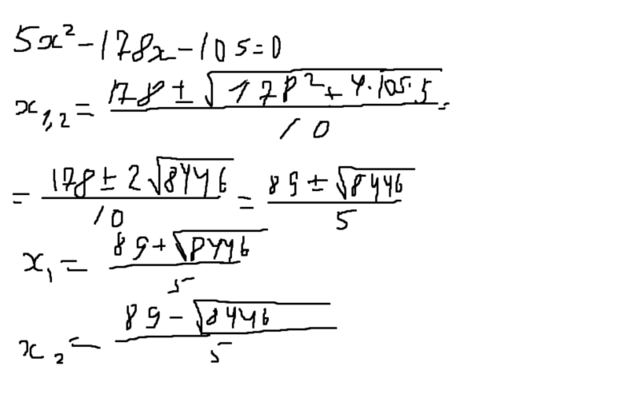 5x² - 178x - 105 = 0
x₁,₂ = (178 ± √(178² + 4·105·5)) / 10 =
= (178 ± 2√8446) / 10 = (89 ± √8446) / 5
x₁ = (89 + √8446) / 5
x₂ = (89 - √8446) / 5